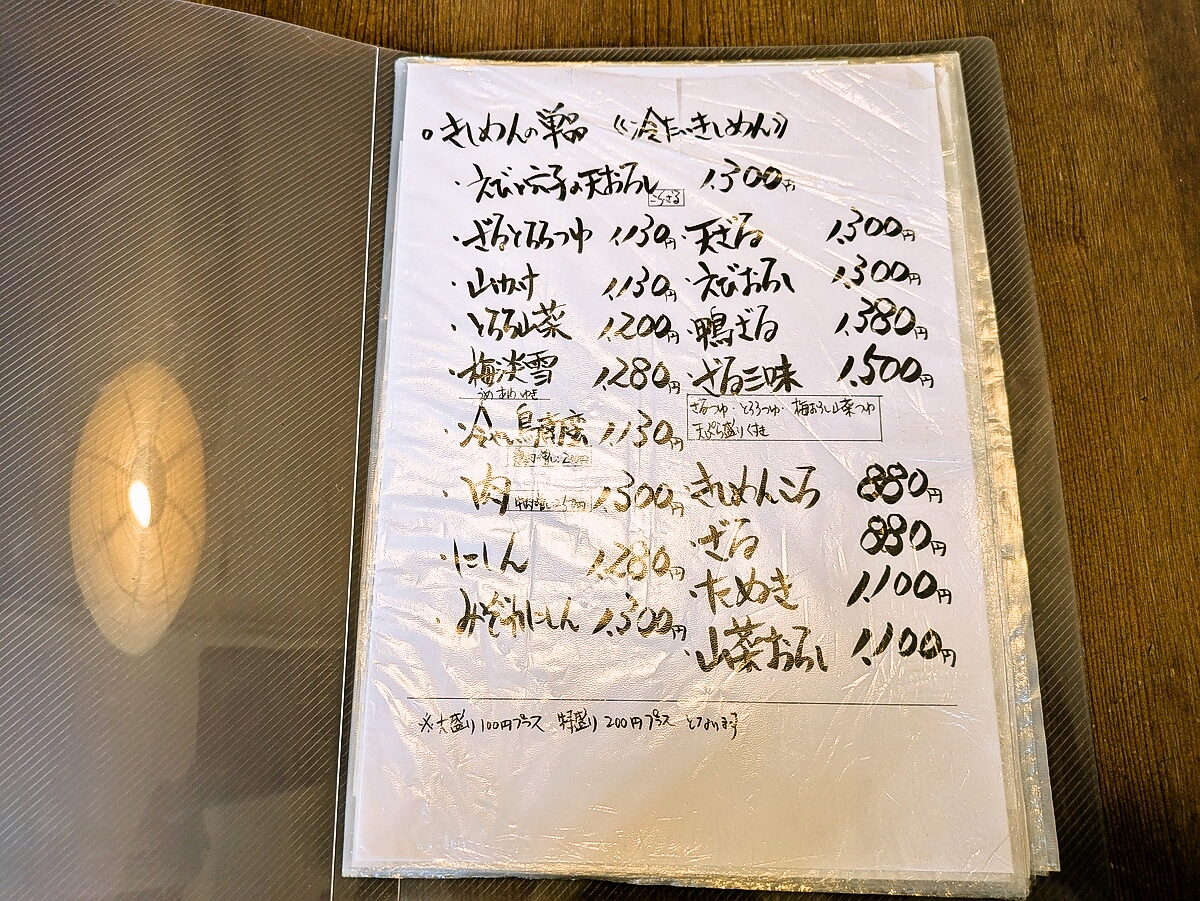 きしめんの単品 《冷たいきしめん》
・えびと穴子の天おろし 1,300円
ころざる
・ざるとろろつゆ 1,130円
・山かけ 1,130円
・とろろ山菜 1,200円
・梅淡雪 1,280円
うめ あわ ゆき
・冷やし鳥南蛮 1,130円
・肉 1,300円
・にしん 1,280円
・みぞれにしん 1,300円
・天ざる 1,300円
・えびおろし 1,300円
・鴨ざる 1,380円
・ざる三味 1,500円
ざるつゆ・とろろつゆ・梅おろし山菜つゆ
天ぷら盛りくずし
・きしめんころ 880円
・ざる 880円
・たぬき 1,100円
・山菜おろし 1,100円
※大盛り100円プラス 特盛り200円プラス となります